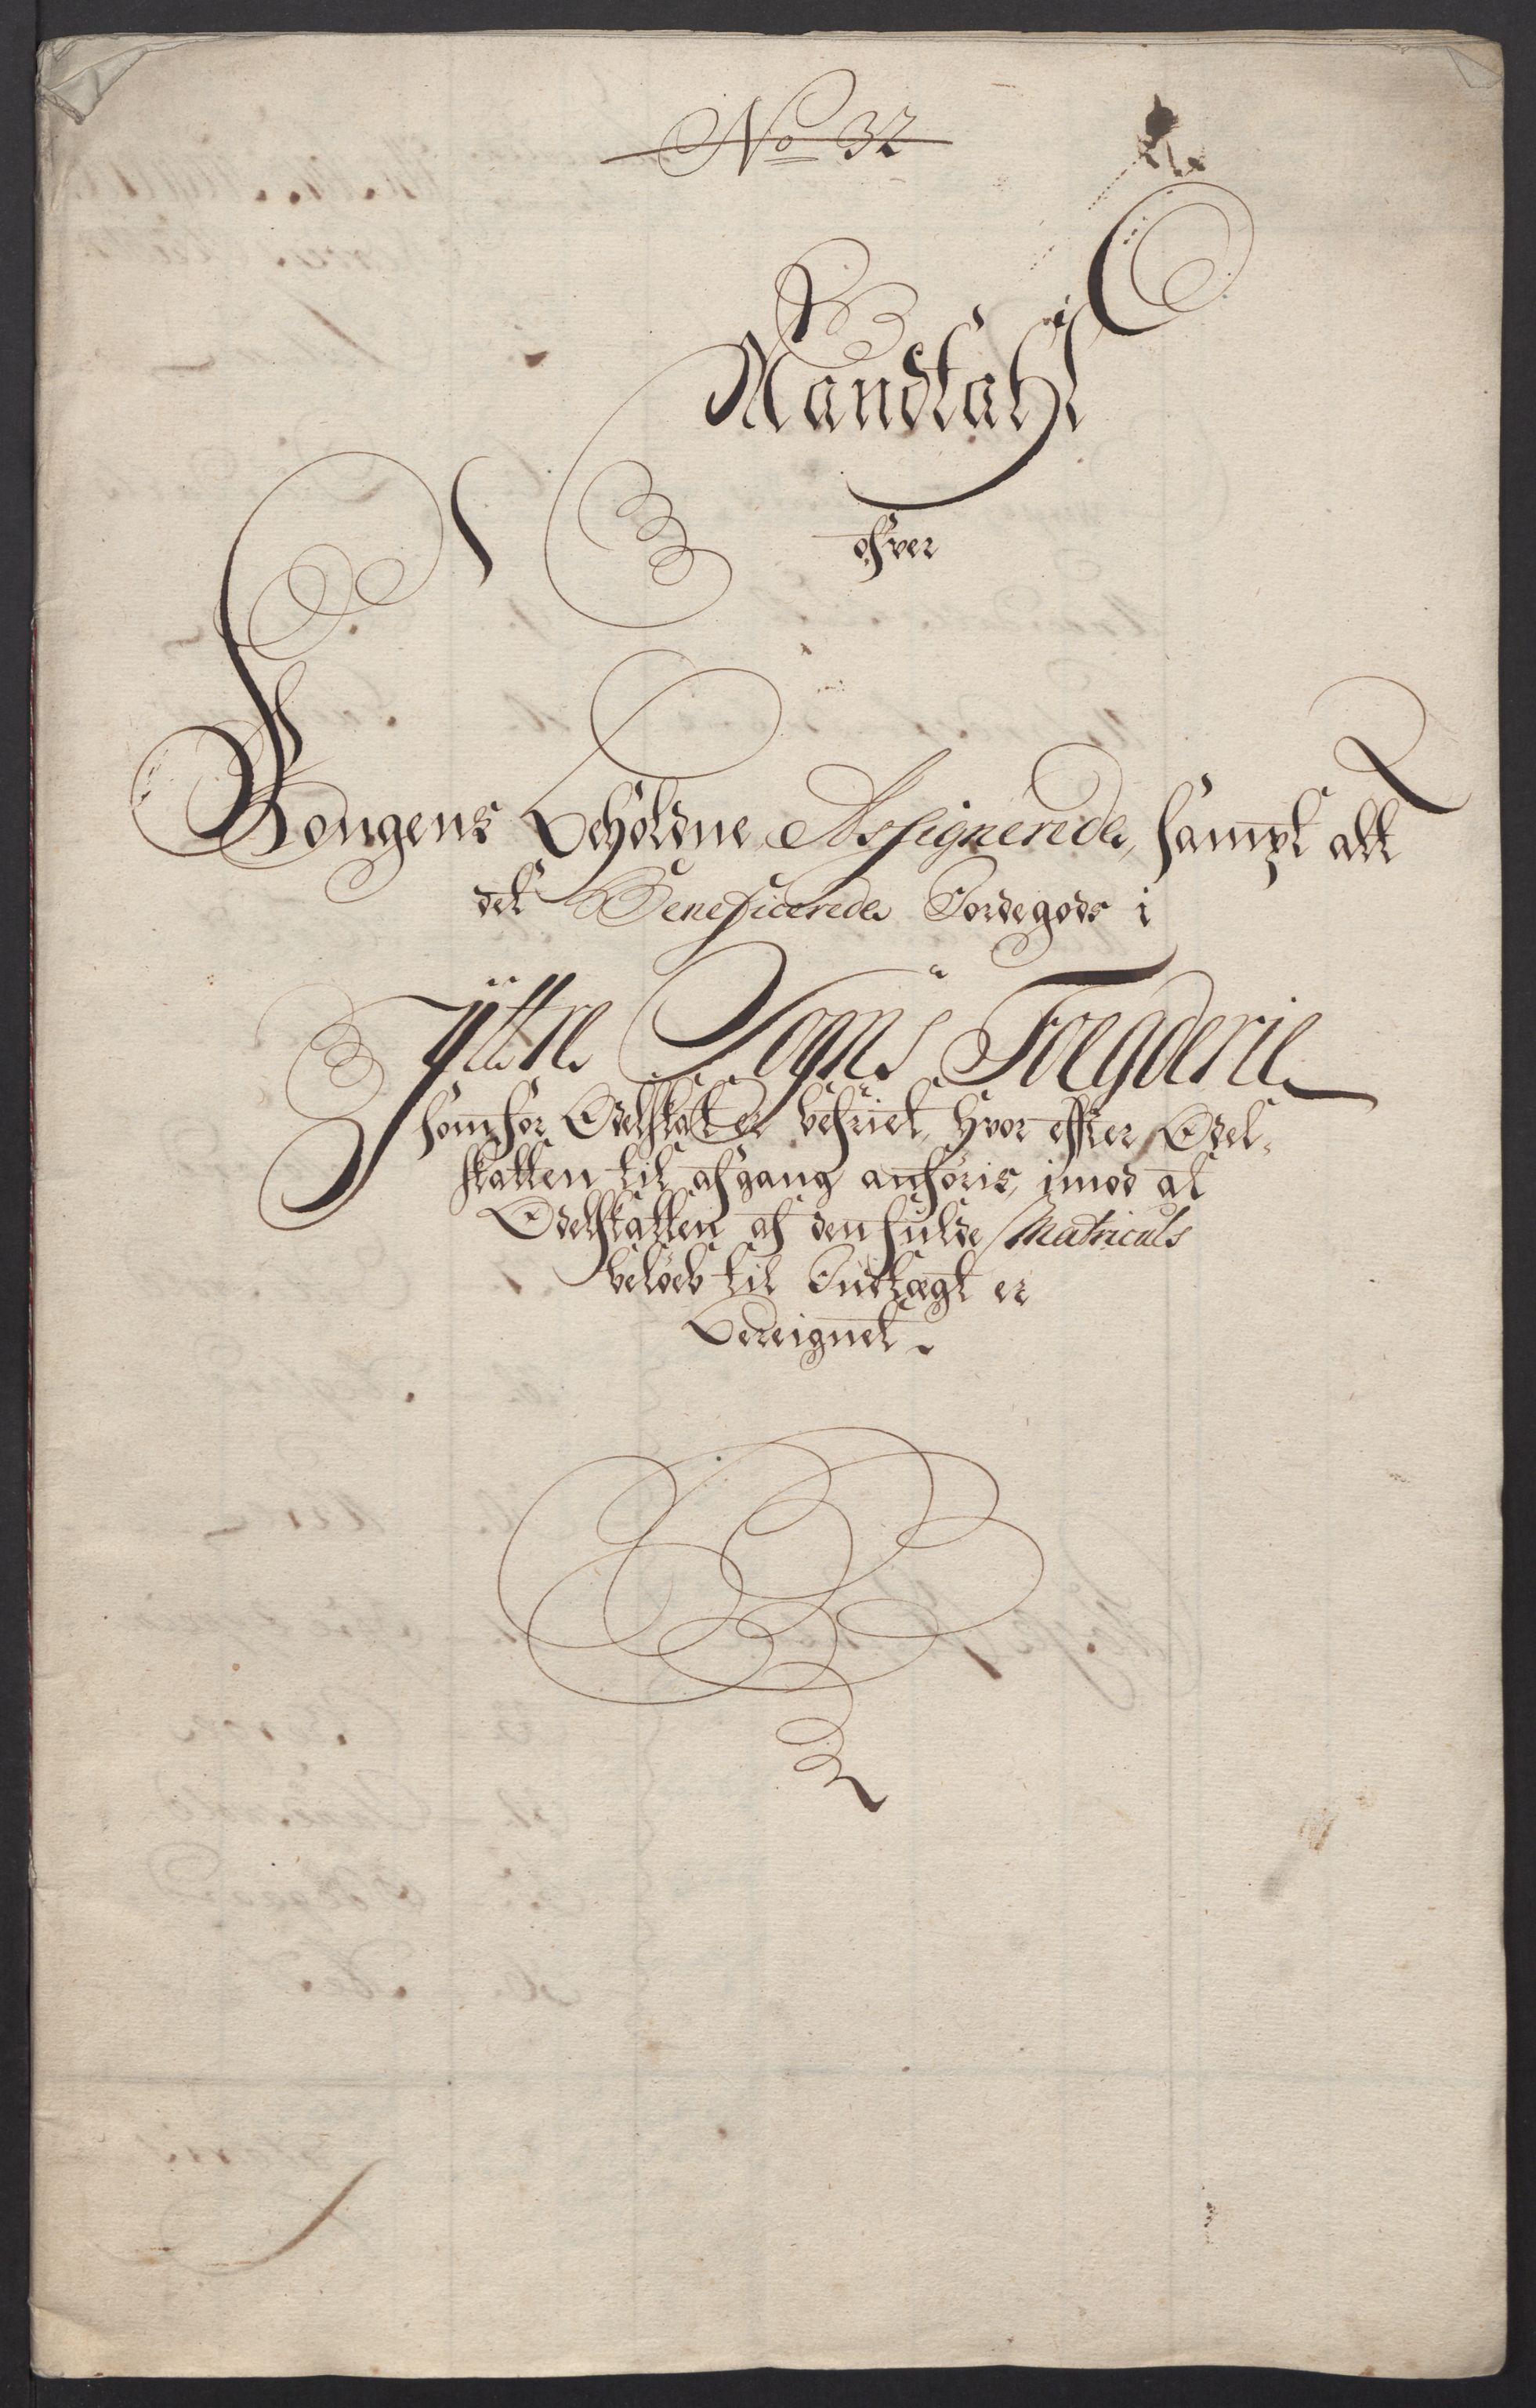 No 32
Mandtahl
ofver
Kongens Beholdne, Assignerede, sampt alt
det Beneficerede Jordegods i
Yttre Sogns Foegderie
som for Odelskat er befriet, hvor effter Odel-
skatten til afgang anföris, imod at
Odelskatten af den fulde Matriculs
beløeb til Indtægt er
Bereignet.